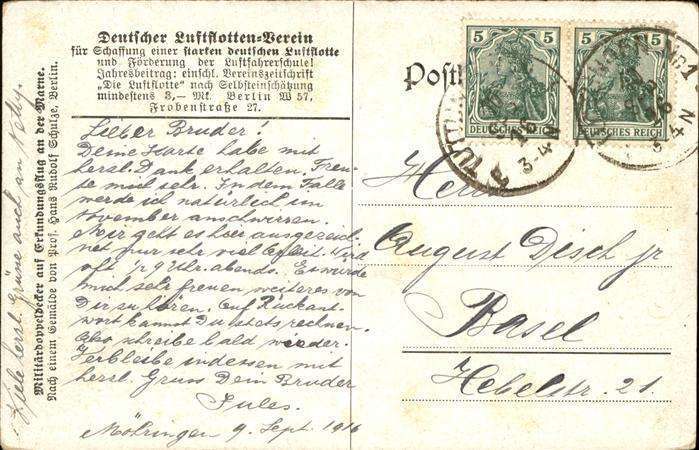 Deutscher Luftflotten-Verein
für Schaffung einer starken deutschen Luftflotte
und Förderung der Luftfahrerschule!
Jahresbeitrag: einschl. Vereinszeitschrift
„Die Luftflotte" nach Selbsteinschätzung
mindestens 3,— Mk. Berlin W 57,
Frobenstraße 27.
Militärdoppeldecker auf Erkundungsflug an der Marne.
Nach einem Gemälde von Prof. Hans Rudolf Schulze, Berlin.
Viele herzl. Grüne auch an
Lieber Bruder!
Deine Karte habe mit
herzl. Dank erhalten. Freu-
te mich sehr. In dem Falle
werde ich natürlich im
November
Mir geht es hier ausgezeich-
net nur sehr viel Arbeit. Wird
oft 1/2 9 Uhr abends. Es würde
mich sehr freuen weiteres von
Dir zu hören. Auf Rückant-
wort kannst Du stets rechnen.
Also schreibe bald wieder.
Verbleibe indessen mit
herzl. Gruss Dein Bruder
Jules.
Möhringen 9. Sept. 1916
Postk
5 5
DEUTSCHES REICH
5 5
DEUTSCHES REICH
TUTTL
3-4 N
Herrn
August Disch jr
Basel
Hebelstr. 21.